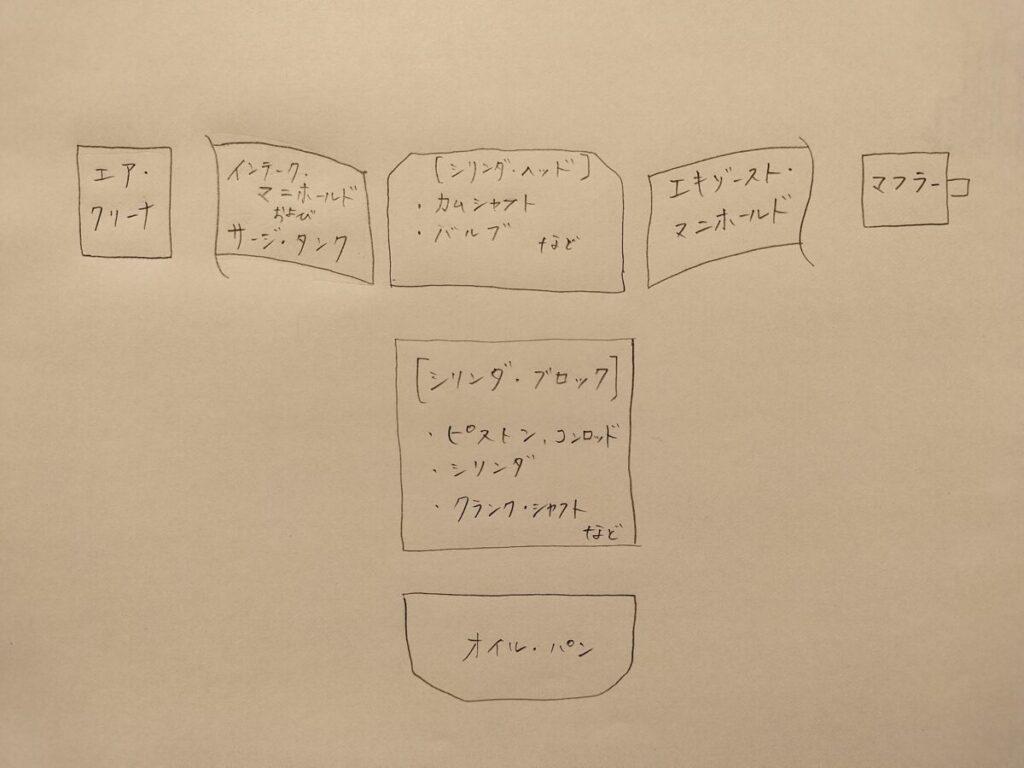 エア・
クリーナ
インテーク・
マニホールド
および
サージ・タンク
[シリンダ・ヘッド]
・カムシャフト
・バルブ
など
エキゾースト・
マニホールド
マフラー
[シリンダ・ブロック]
・ピストン、コンロッド
・シリンダ
・クランク・シャフト
など
オイル・パン